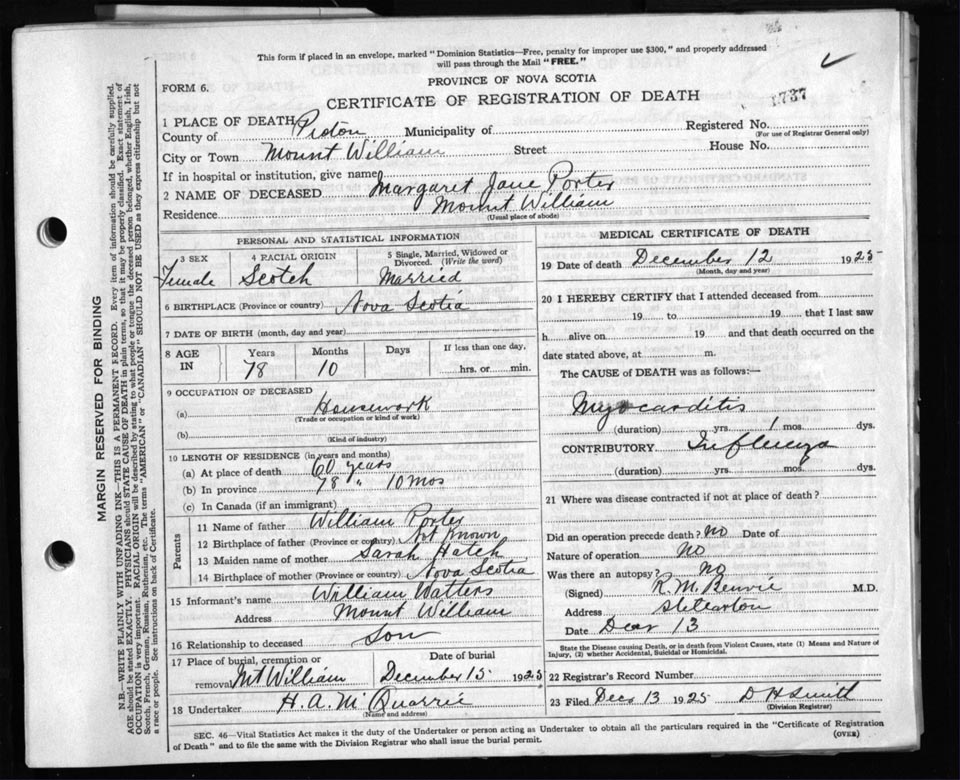 This form if placed in an envelope, marked "Dominion Statistics—Free, penalty for improper use $300," and properly addressed
will pass through the Mail "FREE."
FORM 6.
PROVINCE OF NOVA SCOTIA
CERTIFICATE OF REGISTRATION OF DEATH
1737
1 PLACE OF DEATH
County of Pictou Municipality of
Registered No.
(For use of Registrar General only)
City or Town Mount William Street House No.
If in hospital or institution, give name
2 NAME OF DECEASED Margaret Jane Porter
Residence Mount William
(Usual place of abode)
PERSONAL AND STATISTICAL INFORMATION
3 SEX 4 RACIAL ORIGIN 5 Single, Married, Widowed or
Divorced. (Write the word)
Female Scotch Married
6 BIRTHPLACE (Province or country) Nova Scotia
7 DATE OF BIRTH (month, day and year)
8 AGE IN Years Months Days If less than one day,
78 10 hrs. or min.
9 OCCUPATION OF DECEASED
(a) Housework
(Trade or occupation or kind of work)
(b)
(Kind of industry)
10 LENGTH OF RESIDENCE (in years and months)
(a) At place of death 60 years
(b) In province 78 " 10 mos
(c) In Canada (if an immigrant)
Parents
11 Name of father William Porter
12 Birthplace of father (Province or country) Not Known
13 Maiden name of mother Sarah Hatch
14 Birthplace of mother (Province or country) Nova Scotia
15 Informant's name William Watters
Address Mount William
16 Relationship to deceased Son
17 Place of burial, cremation or Date of burial
removal Mt William December 15 1925
18 Undertaker H. A. McQuarrie
(Name and address)
MEDICAL CERTIFICATE OF DEATH
19 Date of death December 12 1925
(Month, day and year)
20 I HEREBY CERTIFY that I attended deceased from
19 to 19 that I last saw
h alive on 19 and that death occurred on the
date stated above, at m.
The CAUSE of DEATH was as follows:—
Myocarditis
(duration) yrs. 1 mos. dys.
CONTRIBUTORY Influenza
(duration) yrs. mos. dys.
21 Where was disease contracted if not at place of death?
Did an operation precede death? No Date of
Nature of operation No
Was there an autopsy? No
(Signed) R. M. Benvie M.D.
Address Stellarton
Date Decr 13
State the Disease causing Death, or in death from Violent Causes, state (1) Means and Nature of
Injury, (2) whether Accidental, Suicidal or Homicidal.
22 Registrar's Record Number
23 Filed Decr 13 1925 D H Smith
(Division Registrar)
SEC. 46—Vital Statistics Act makes it the duty of the Undertaker or person acting as Undertaker to obtain all the particulars required in the "Certificate of Registration
of Death" and to file the same with the Division Registrar who shall issue the burial permit.
(OVER)
MARGIN RESERVED FOR BINDING
N.B.—WRITE PLAINLY WITH UNFADING INK—THIS IS A PERMANENT RECORD. Every item of information should be carefully supplied.
AGE should be stated EXACTLY. PHYSICIANS should STATE CAUSE OF DEATH in plain terms, so that it may be properly classified. Exact statement of
OCCUPATION is very important. RACIAL ORIGIN will be described by stating to what people or tongue the deceased person belonged, whether English, Irish,
Scotch, French, German, Russian, Ruthenian, etc. The terms "AMERICAN" or "CANADIAN" SHOULD NOT BE USED as they express citizenship but not
a race or people. See instructions on back of Certificate.